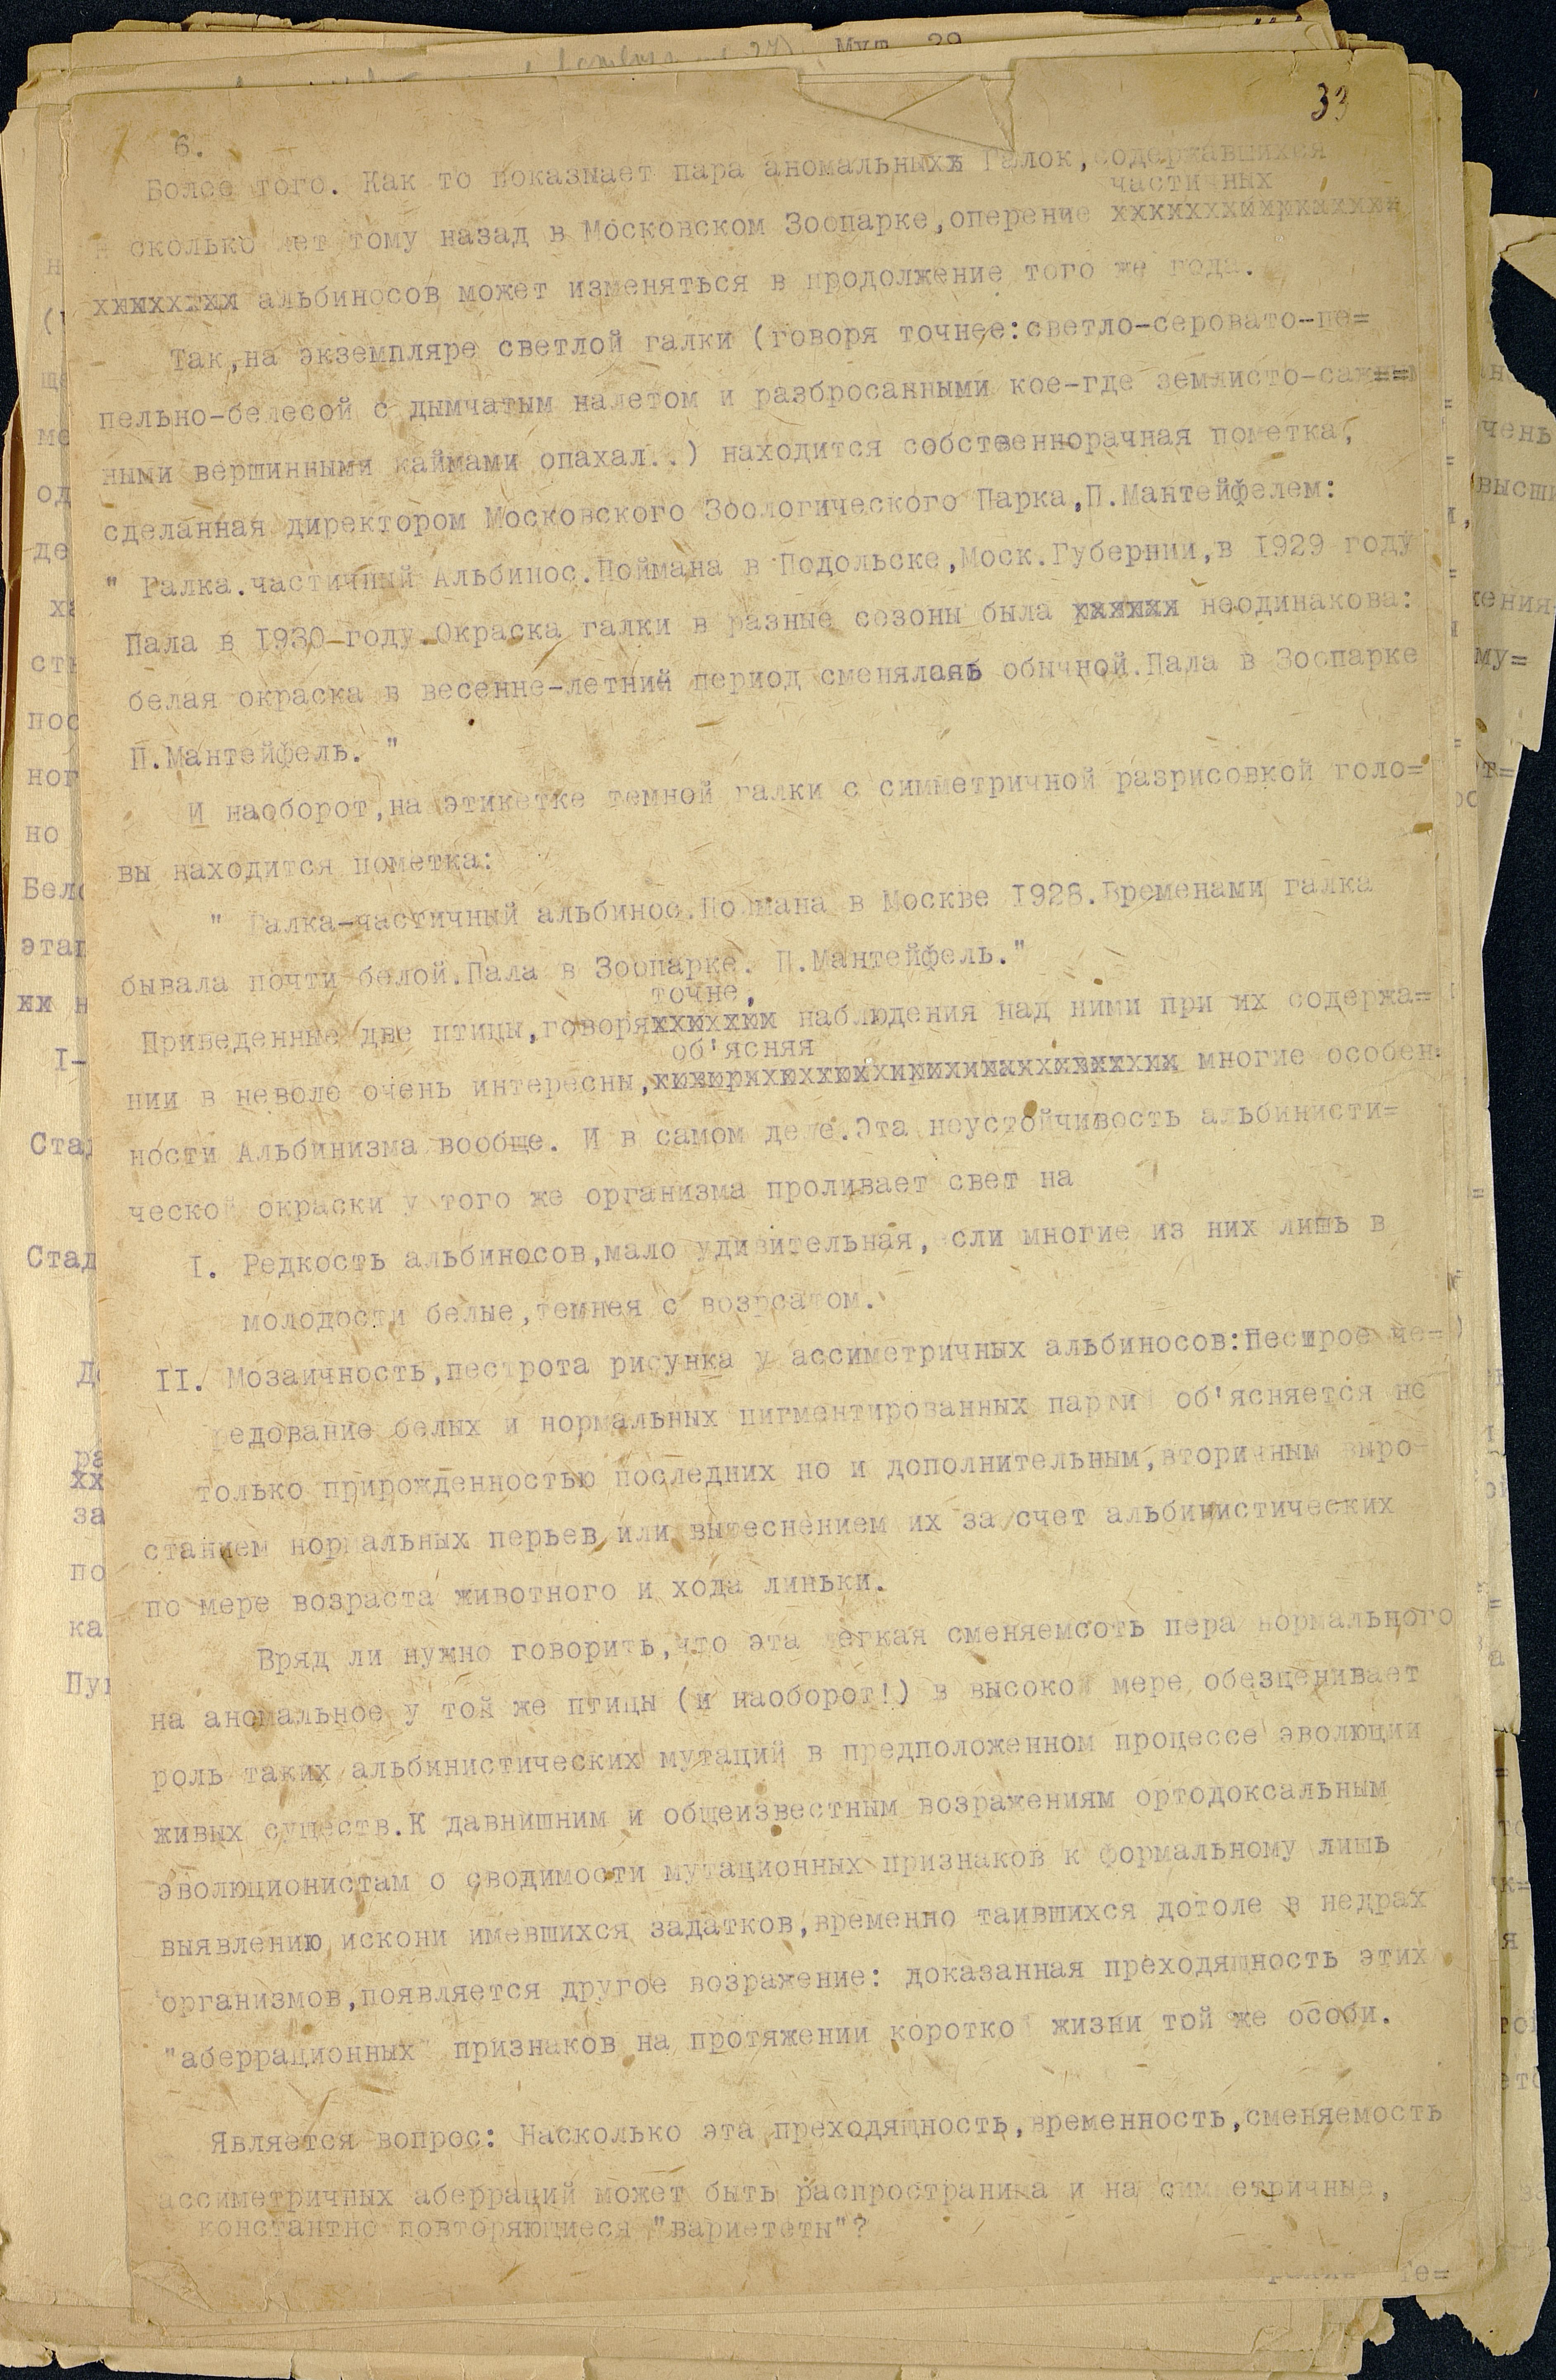 33
6.
Более того. Как то показывает пара аномальныхх Галок, содержавшихся
частичных
сколько лет тому назад в Московском Зоопарке,оперение
альбиносов может изменяться в продолжение того же года.
Так,на экземпляре светлой галки (говоря точнее:светло-серовато-пе=
пельно-белесой с дымчатым налетом и разбросанными кое-где землисто-саж==
ными вершинными каймами опахал..) находится собственнорачная пометка,
сделанная директором Московского Зоологического Парка,П.Мантейфелем:
" Галка.частичный Альбинос.Поймана в Подольске,Моск.Губернии,в 1929 году
Пала в 1930 году.Окраска галки в разные сезоны была хххххх неодинакова:
белая окраска в весенне-летний период сменялаяь обычной.Пала в Зоопарке
П.Мантейфель. "
И наоборот,на этикетке темной галки с симметричной разрисовкой голо=
вы находится пометка:
" Галка-частичный альбинос.Поймана в Москве 1928.Временами галка
бывала почти белой.Пала в Зоопарке. П.Мантейфель."
точне,
Приведенные две птицы,говоря наблюдения над ними при их содержа=
об'ясняя
нии в неволе очень интересны, многие особен=
ности Альбинизма вообще. И в самом деле.Эта неустойчивость альбинисти=
ческой окраски у того же организма проливает свет на
I. Редкость альбиносов,мало удивительная, если многие из них лишь в
молодости белые,темнея с возрсатом.
II. Мозаичность,пестрота рисунка у ассиметричных альбиносов:Пестрое че=
редование белых и нормальных пигментированных партий об'ясняется не
только прирожденностью последних но и дополнительным,вторичным выро=
станием нормальных перьев или вытеснением их за счет альбинистических
по мере возраста животного и хода линьки.
Вряд ли нужно говорить,что эта легкая сменяемсоть пера нормального
на аномальное у той же птицы (и наоборот!) в высокой мере обезценивает
роль таких альбинистических мутаций в предположенном процессе эволюции
живых существ.К давнишним и общеизвестным возражениям ортодоксальным
эволюционистам о сводимости мутационных признаков к формальному лишь
выявлению искони имевшихся задатков,временно таившихся дотоле в недрах
организмов,появляется другое возражение: доказанная преходящность этих
"аберрационных" признаков на протяжении короткой жизни той же особи.
Является вопрос: Насколько эта преходящность,временность,сменяемость
ассиметричных аберраций может быть распространима и на симметричные,
константно повторяющиеся "вариететы"?